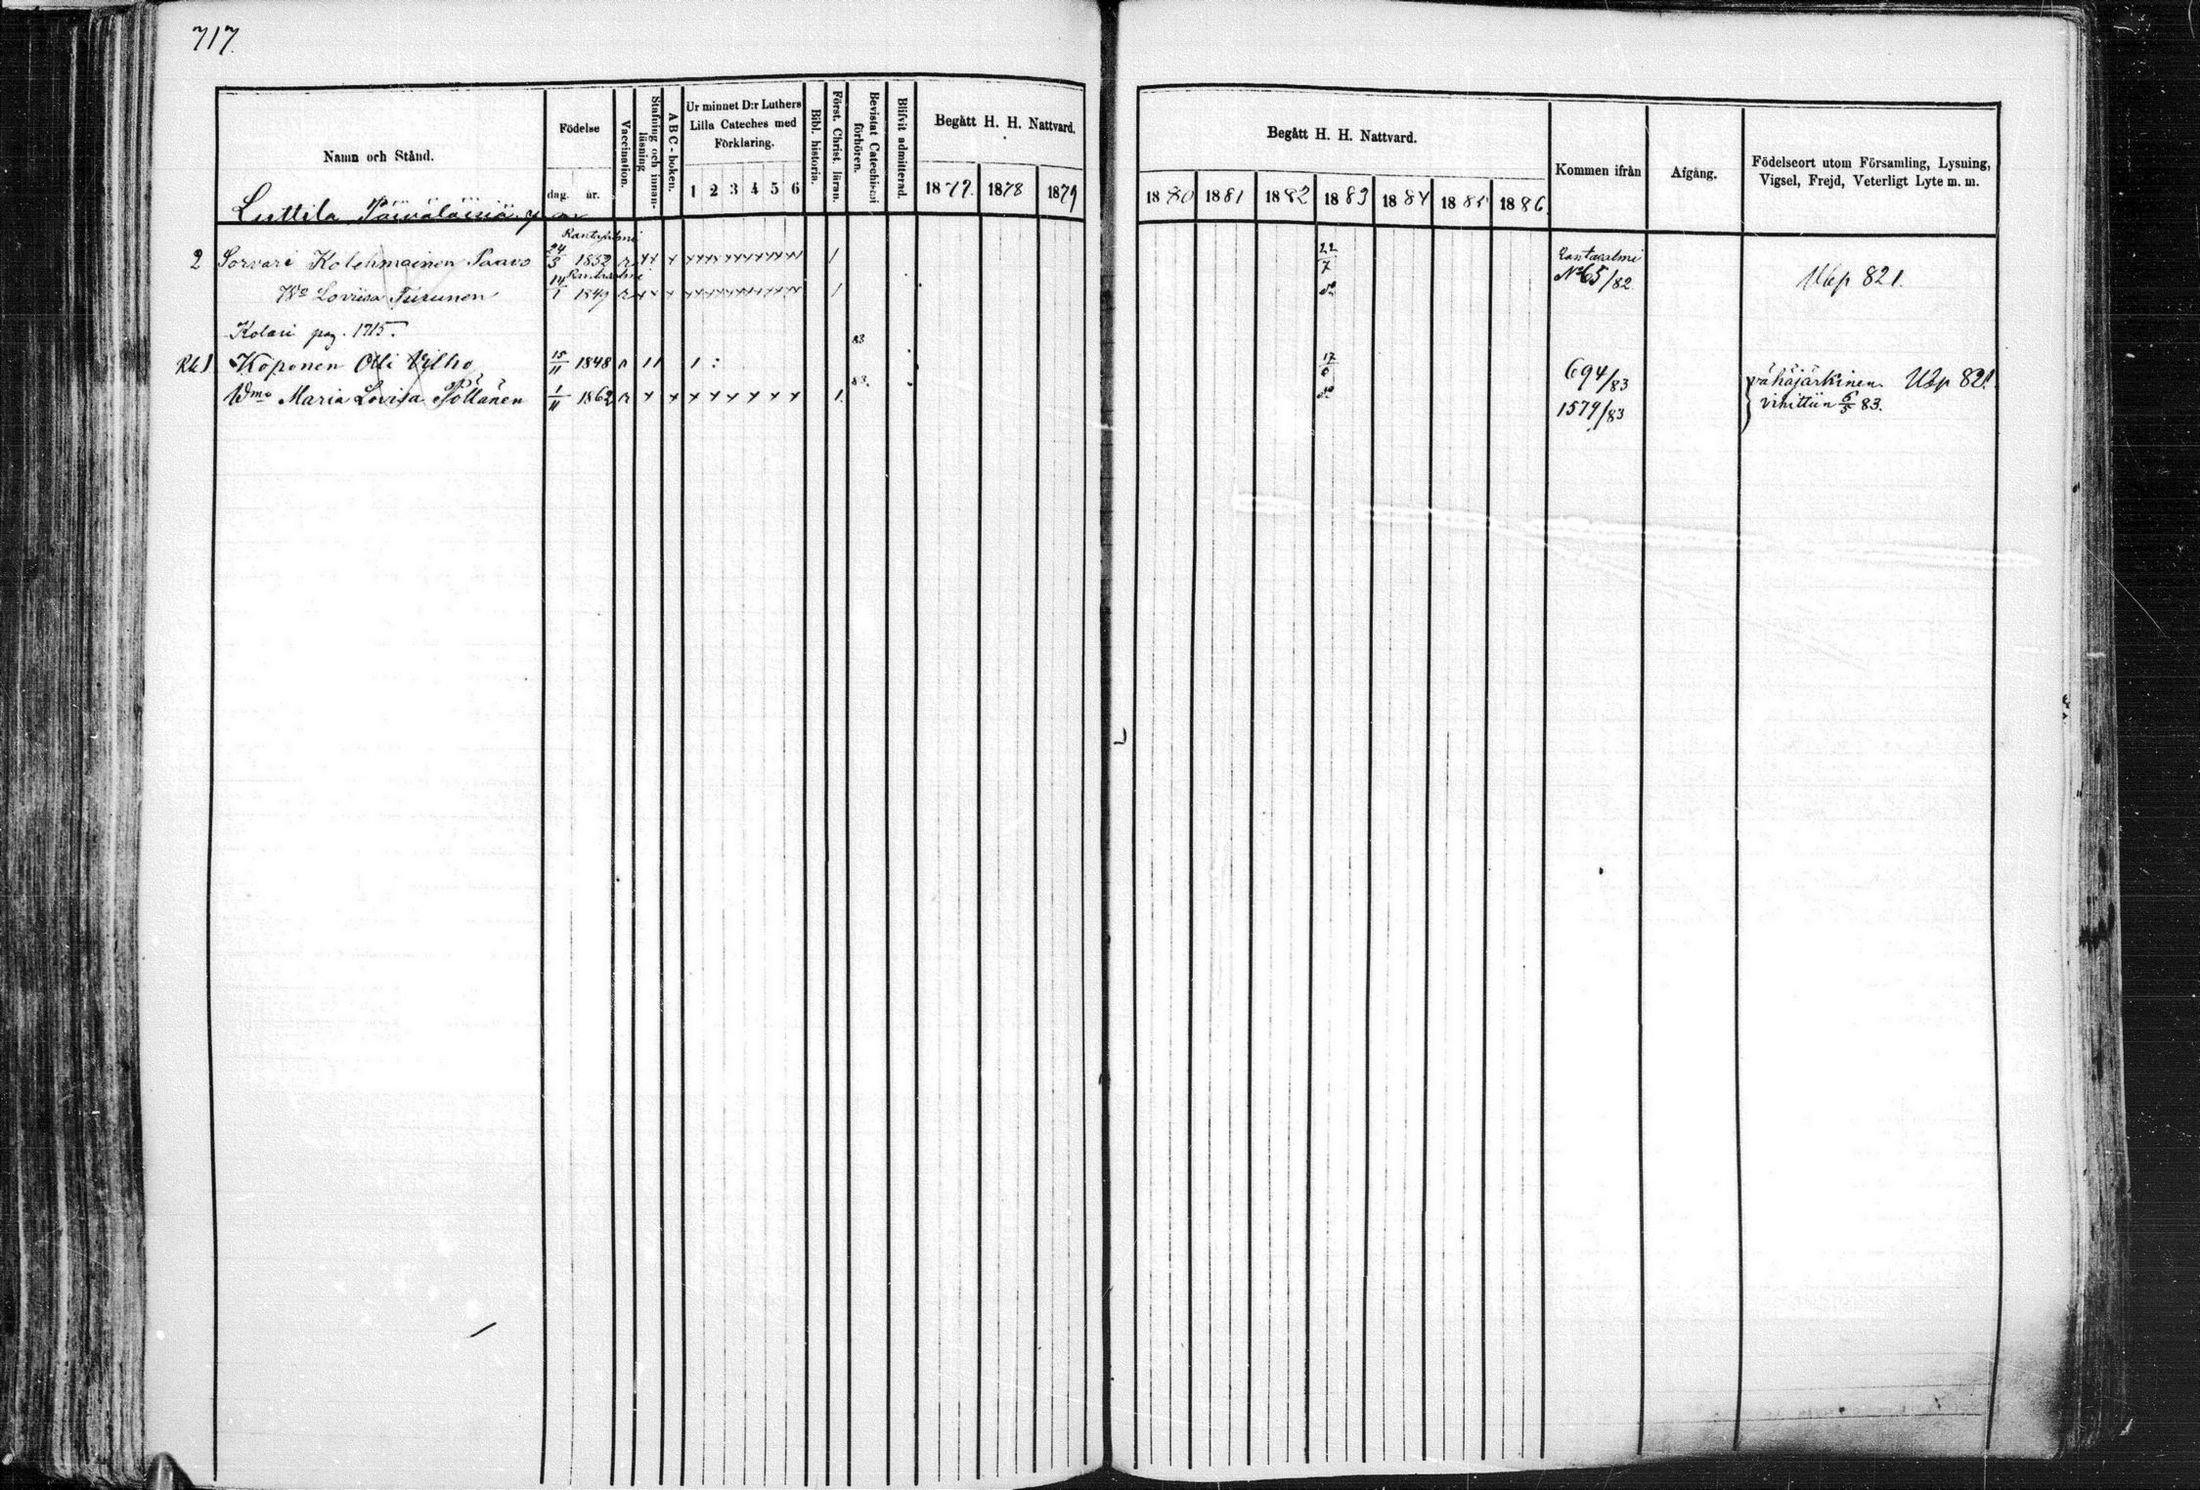 717.
Namn och Stånd.
Födelse
dag. år.
Vaccination.
Stafning och innanläsning
A B C - boken.
Ur minnet D:r Luthers Lilla Cateches med Förklaring.
1 2 3 4 5 6
Bibl. historia.
Först. Christ. läran.
Bevistat Catechismi förhören.
Blifvit admitterad.
Begått H. H. Nattvard.
1877. 1878 1879
Begått H. H. Nattvard.
1880 1881 1882 1883 1884 1885 1886.
Kommen ifrån
Afgång.
Födelseort utom Församling, Lysning, Vigsel, Frejd, Veterligt Lyte m. m.
Luttila
2 Sorvari Kolehmainen Paavo Rantasalmi 24/3 1852 r x x x x x x x x x x x 1 22/7 Rantasalmi No 65/82 Ukp 821.
Wo Loviisa Turunen Rantasalmi 14/1 1849 r x x x x x x x x x x x 1 do
Kolari pag. 1715.
Rk 1 Koponen Olli Vilho 15/11 1848 1 1 1 : 83 17/6 694/83 vähäjärkinen. Ukp 821
Wmo Maria Lovisa Pöllänen 1/11 1862 r x x x x x x x x 1. 83. do 1579/83 vihittiin 6/5 83.